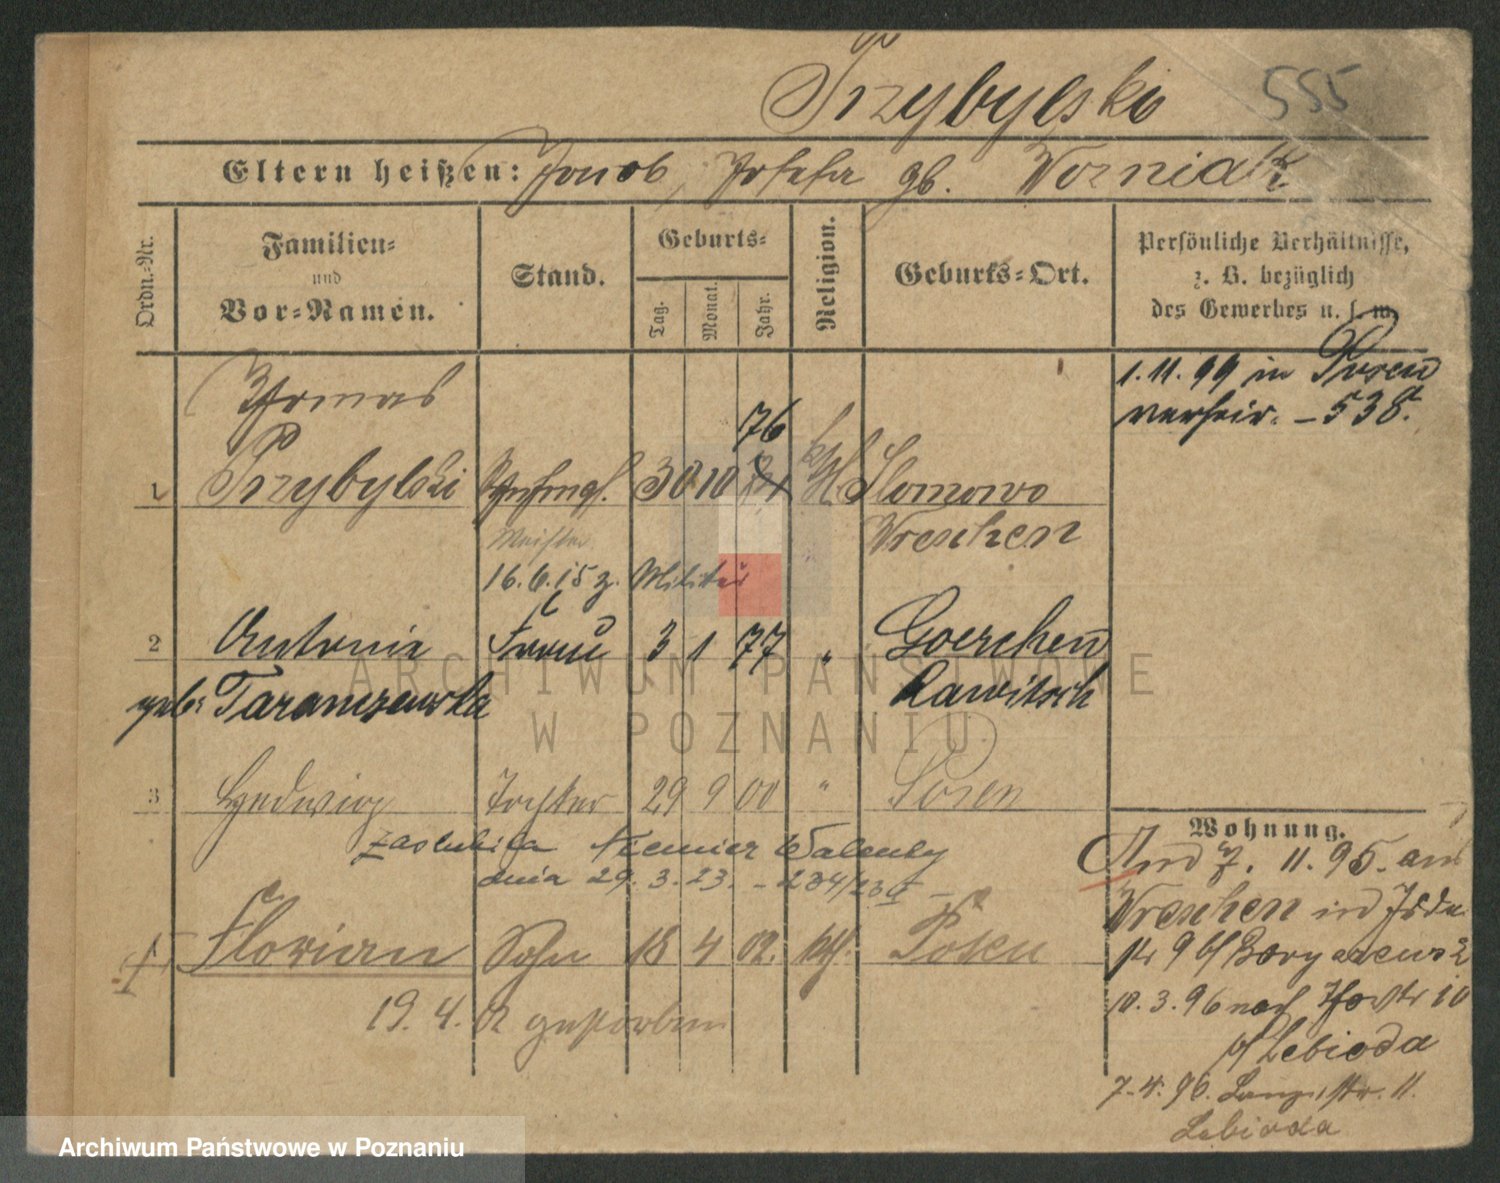 Przybylski
555
Eltern heißen: Jacob, Josefa gb. Wozniak
Ordn.-Nr.
Familien-
und
Vor-Namen.
Stand.
Geburts-
Tag.
Monat.
Jahr.
Religion.
Geburts-Ort.
Persönliche Verhältnisse,
z. B. bezüglich
des Gewerbes u. s. w.
1.11.99 in Posen
verheir. – 538.
Thomas
76
1 Przybylski 30 10 kth Slomowo
Wreschen
Meister
16.6.15 z. Militär
2 Antonie Frau 3 1 77 " Goerchen
geb. Taranczewska Rawitsch
3 Hedwig Tochter 29 9 00 " Posen
zaslubila Niemier Walenty
dnia 29.3.23. – 234/23
Florian Sohn 18 4 02. kth. Posen
19.4.02 gestorben
Wohnung.
7.11.95. aus
Wreschen
10.3.96 nach 10
b/ Lebioda
7.4.96. str. 11.
Lebioda
ARCHIWUM PAŃSTWOWE
W POZNANIU
Archiwum Państwowe w Poznaniu